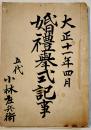 大正十一年四月
婚禮舉式記事
五代
小林彦兵衛